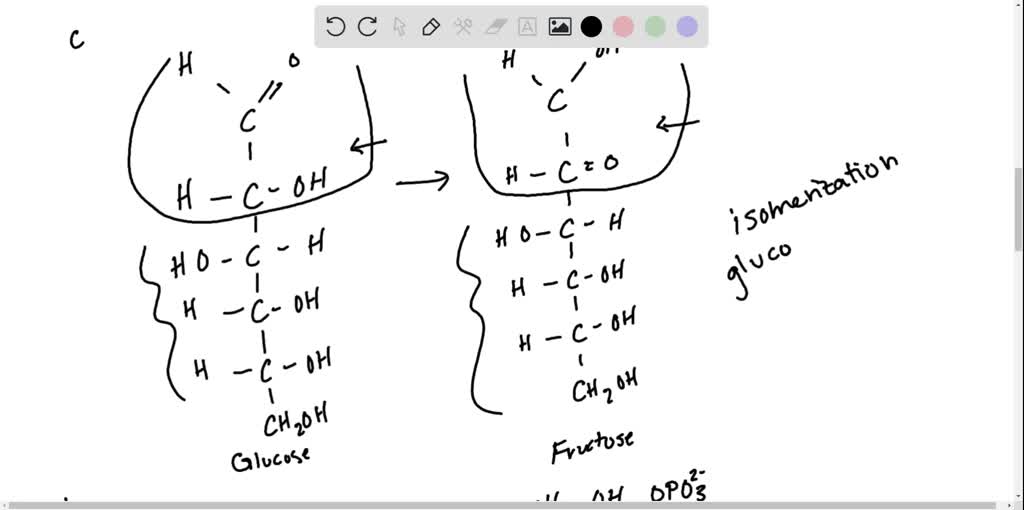 C
H O
C
H - C - OH
HO - C - H
H - C - OH
H - C - OH
CH2OH
Glucose
H OH
C
H - C = O
HO - C - H
H - C - OH
H - C - OH
CH2OH
Fructose
isomerization
gluco
H OH OPO3 2-
A